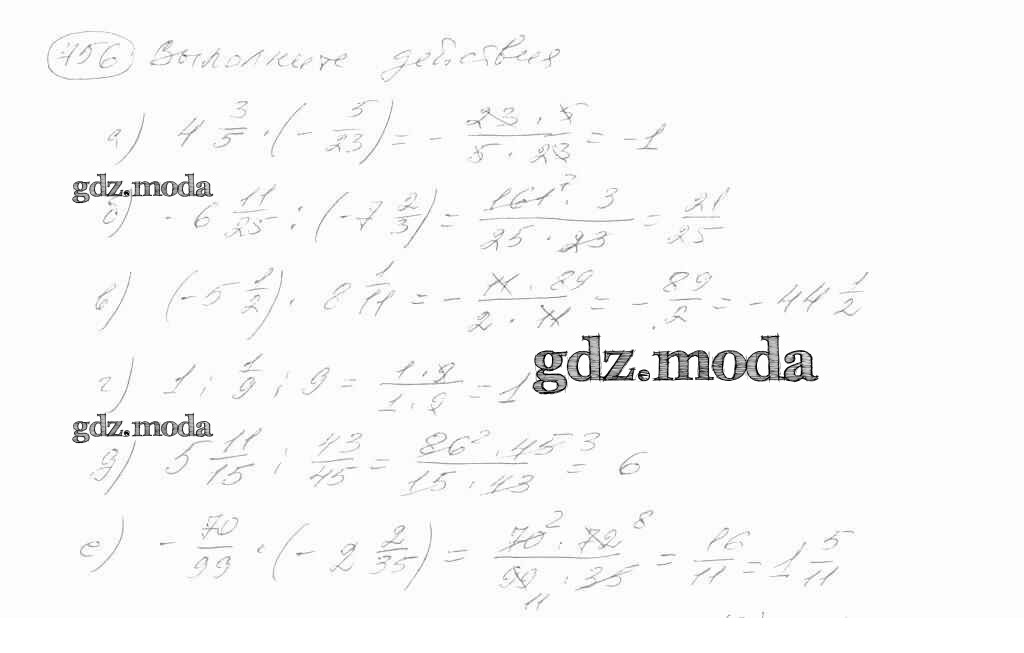 756 Выполните действия
а) 4 3/5 · (- 5/23) = - 23 · 5 / 5 · 23 = -1
gdz.moda
б) - 6 11/25 : (-7 2/3) = 161 7 · 3 / 25 · 23 = 21/25
в) (-5 1/2) · 8 1/11 = - 11 · 89 / 2 · 11 = - 89/2 = - 44 1/2
gdz.moda
г) 1 : 1/9 : 9 = 1 · 9 / 1 · 9 = 1
gdz.moda
д) 5 11/15 : 43/45 = 86 2 · 45 3 / 15 · 43 = 6
е) - 70/99 · (- 2 2/35) = 70 2 · 72 8 / 99 11 · 35 = 16/11 = 1 5/11